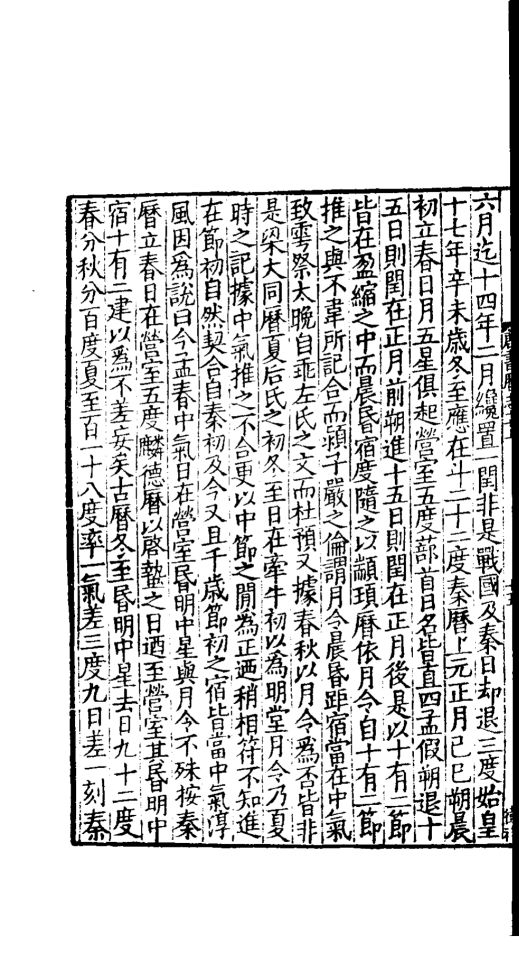 六月迄十四年二月纔置一閏非是戰國及秦日却退三度始皇
十七年辛未歲冬至應在斗二十二度秦曆上元正月己巳朔晨
初立春日月五星俱起營室五度蔀首日名皆直四孟假朔退十
五日則閏在正月前朔進十五日則閏在正月後是以十有二節
皆在盈縮之中而晨昬宿度隨之以顓頊曆依月令自十有二節
推之與不韋所記合而潁子嚴之倫謂月令晨昏距宿當在中氣
致雩祭太晚自乖左氏之文而杜預又據春秋以月令爲否皆非
是梁大同曆夏后氏之初冬至日在牽牛初以爲明堂月令乃夏
時之記據中氣推之不合更以中節之閒為正迺稍相符不知進
在節初自然契合自秦初及今又且千歲節初之宿皆當中氣淳
風因爲說曰今孟春中氣日在營室昬明中星與月令不殊按秦
曆立春日在營室五度麟德曆以啓蟄之日迺至營室其昬明中
宿十有二建以爲不差妄矣古曆冬至昏明中星去日九十二度
春分秋分百度夏至百一十八度率一氣差三度九日差一刻秦